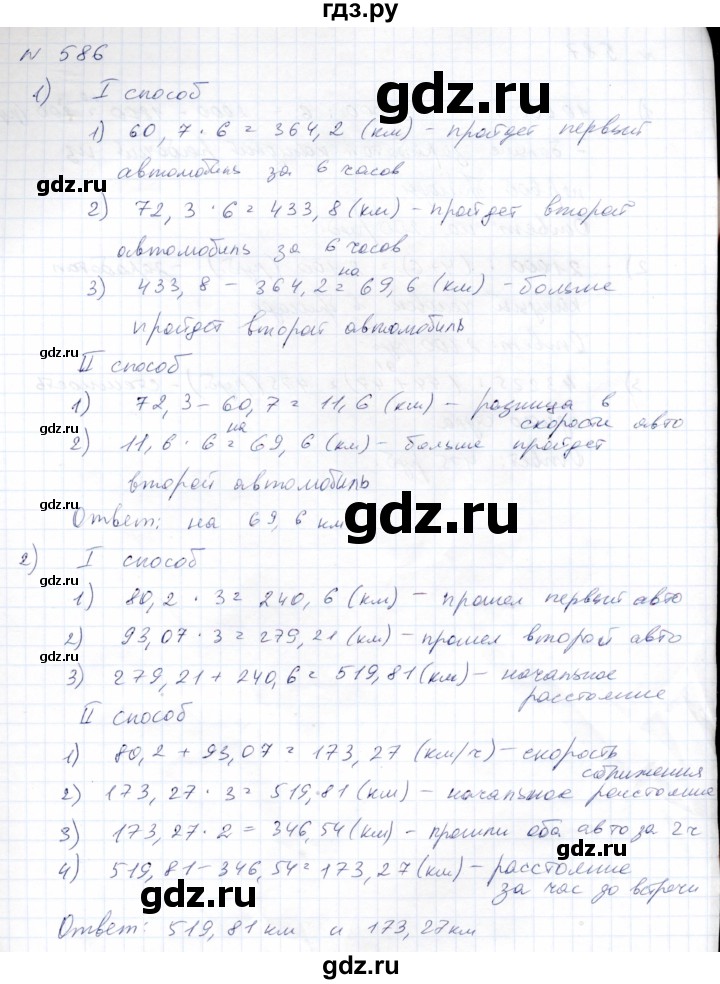 гдз.ру
N 586
1) I способ
1) 60,7 · 6 = 364,2 (км) - пройдет первый
автомобиль за 6 часов
2) 72,3 · 6 = 433,8 (км) - пройдет второй
автомобиль за 6 часов
3) 433,8 - 364,2 = на 69,6 (км) - больше
пройдет второй автомобиль
gdz.ru
II способ
1) 72,3 - 60,7 = 11,6 (км) - разница в
скорости авто
2) 11,6 · 6 = на 69,6 (км) - больше пройдет
второй автомобиль
Ответ: на 69,6 км
gdz.ru
2) I способ
1) 80,2 · 3 = 240,6 (км) - прошел первый авто
2) 93,07 · 3 = 279,21 (км) - прошел второй авто
3) 279,21 + 240,6 = 519,81 (км) - начальное
расстояние
II способ
1) 80,2 + 93,07 = 173,27 (км/ч) - скорость
сближения
2) 173,27 · 3 = 519,81 (км) - начальное расстояние
3) 173,27 · 2 = 346,54 (км) - прошли оба авто за 2ч
4) 519,81 - 346,54 = 173,27 (км) - расстояние
за час до встречи
Ответ: 519,81 км и 173,27 км
gdz.ru